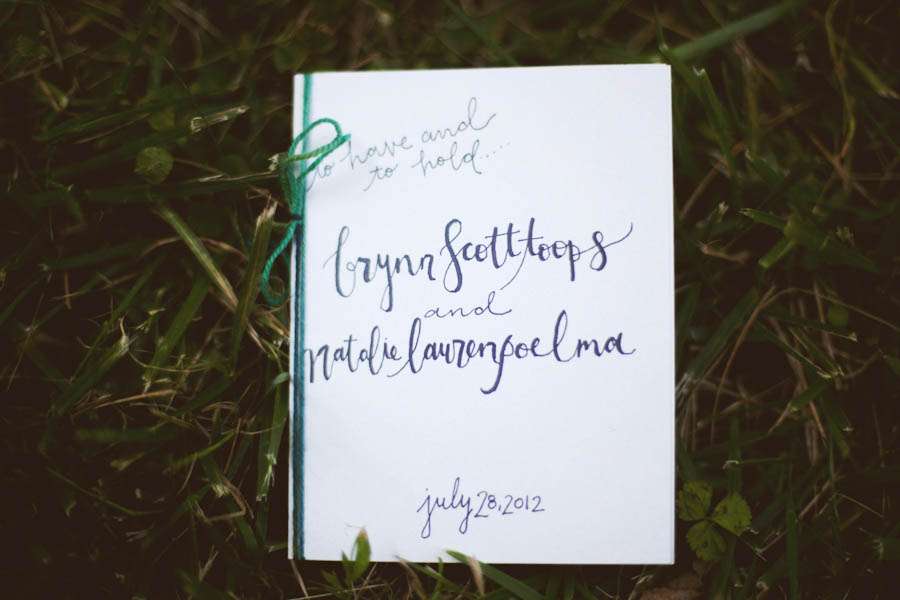 to have and
to hold....
brynn scott toops
and
natalie lauren poelma
july 28, 2012